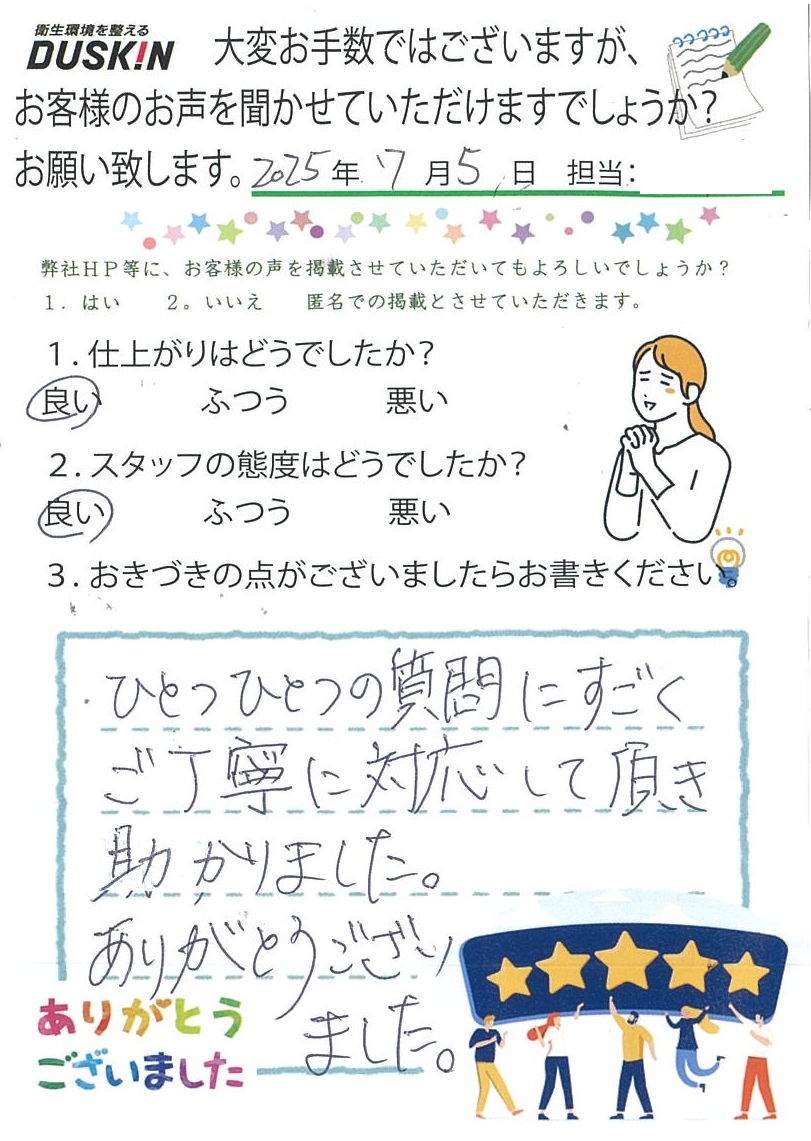 衛生環境を整える
DUSK!N
大変お手数ではございますが、
お客様のお声を聞かせていただけますでしょうか?
お願い致します。2025年 7月5日 担当:
弊社HP等に、お客様の声を掲載させていただいてもよろしいでしょうか?
1. はい 2。いいえ 匿名での掲載とさせていただきます。
1.仕上がりはどうでしたか?
良い ふつう 悪い
2.スタッフの態度はどうでしたか?
良い ふつう 悪い
3.おきづきの点がございましたらお書きください。
ひとつひとつの質問にすごく
ご丁寧に対応して頂き
助かりました。
ありがとうござい
ました。
ありがとう
ございました